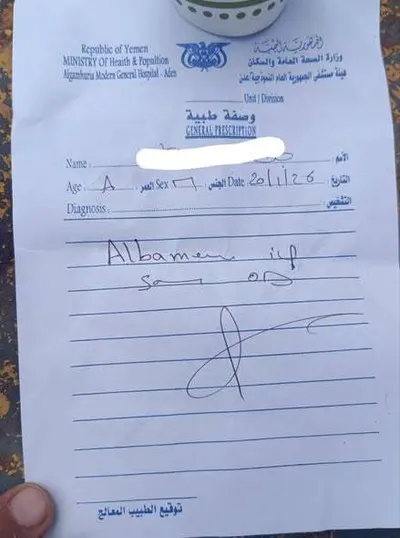 Republic of Yemen
MINISTRY OF Health & Popultion
Algamhuria Modern General Hospital - Aden
الجمهورية اليمنية
وزارة الصحة العامة والسكان
هيئة مستشفى الجمهورية العام النموذجية/عدن
Unit / Division
وصفة طبية
GENERAL PRESCRIPTION
Name : الأسم :
Age : A العمر Sex M الجنس Date 20/1/26 التاريخ :
Diagnosis : التشخيص :
Albamen
OD
توقيع الطبيب المعالج